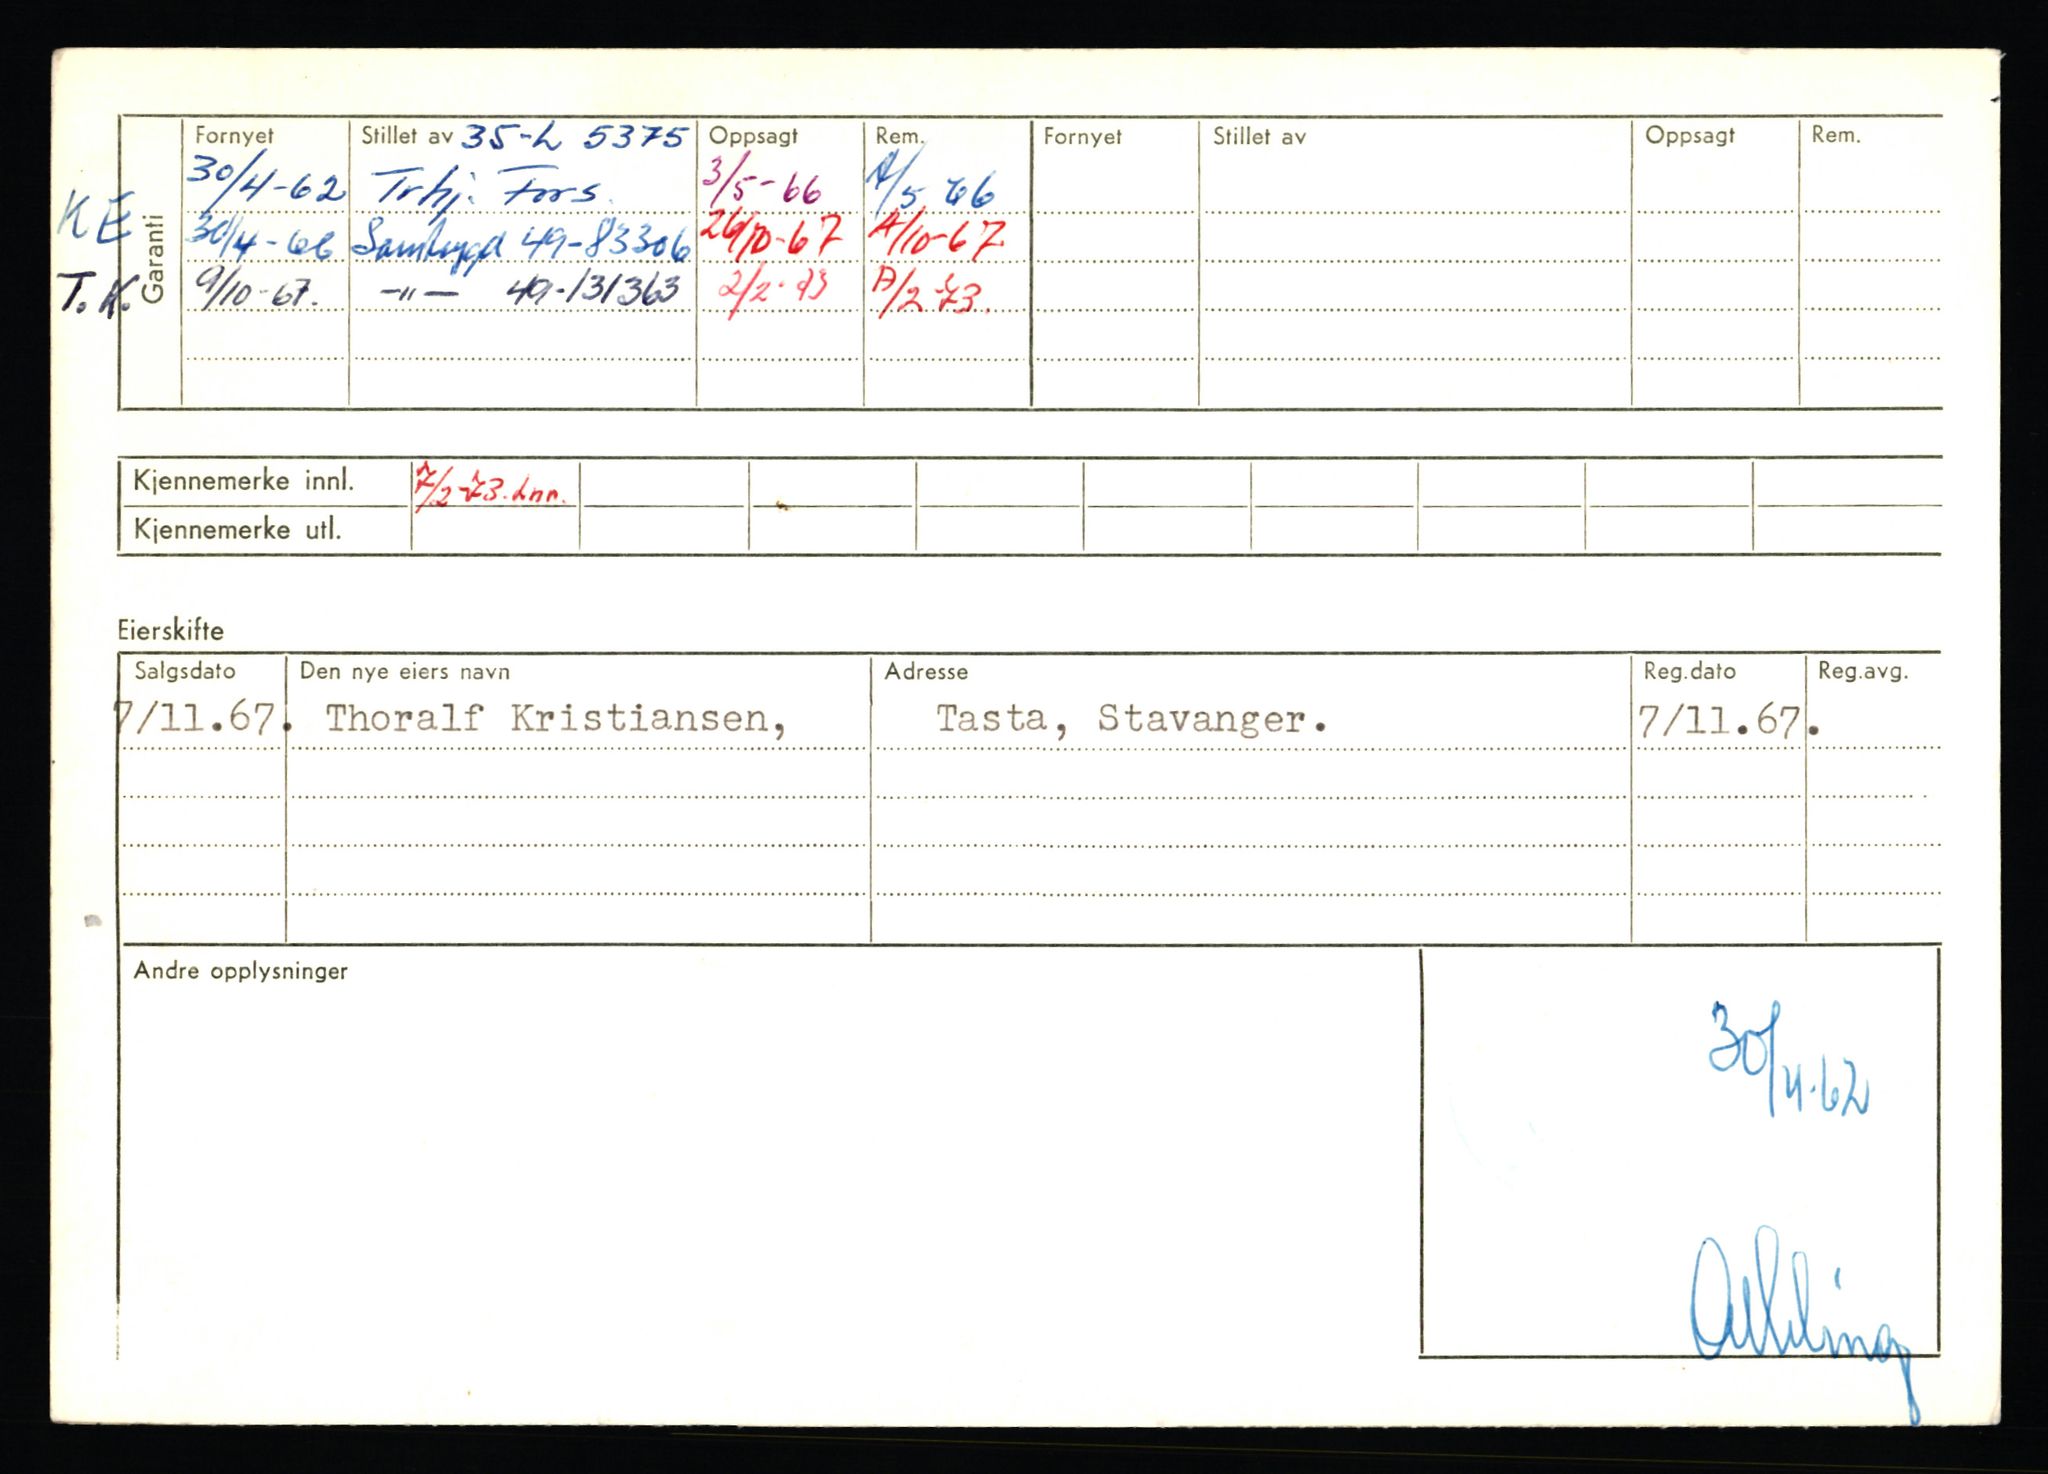 Fornyet Stillet av 35-L 5375 Oppsagt Rem. Fornyet Stillet av Oppsagt Rem.
30/4-62 Trhj. Fors. 3/5-66 A/5 66
KE 30/4-66 Samtrygd 49-83306 26/10-67 A/10-67
T.K. 9/10-67. -"- 49-131363 2/2-73 A/2-73.
Garanti
Kjennemerke innl. 7/2-73. Lnn.
Kjennemerke utl.
Eierskifte
Salgsdato Den nye eiers navn Adresse Reg.dato Reg.avg.
7/11.67. Thoralf Kristiansen, Tasta, Stavanger. 7/11.67.
Andre opplysninger
30/4.62